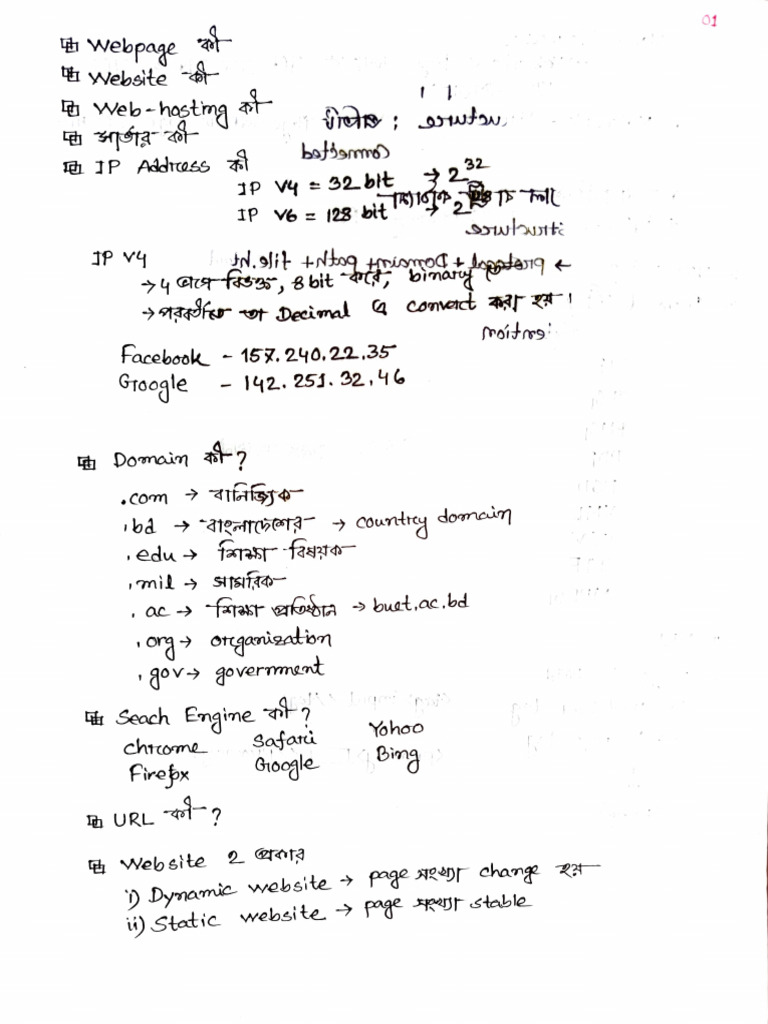 01
Webpage কী
Website কী
Web-hosting কী
সার্ভার কী
IP Address কী
IP V4 = 32 bit → 2^32
IP V6 = 128 bit → 2
IP V4
→ 4 অংশে বিভক্ত, 8 bit করে, binary
→ পরবর্তীতে তা Decimal এ convert করা হয়।
Facebook - 157.240.22.35
Google - 142.251.32.46
Domain কী?
.com → বানিজ্যিক
.bd → বাংলাদেশের → country domain
.edu → শিক্ষা বিষয়ক
.mil → সামরিক
.ac → শিক্ষা প্রতিষ্ঠান → buet.ac.bd
.org → organization
.gov → government
Seach Engine কী?
Chrome Safari Yohoo
Firefox Google Bing
URL কী?
Website 2 প্রকার
i) Dynamic website → page সংখ্যা change হয়
ii) Static website → page সংখ্যা stable